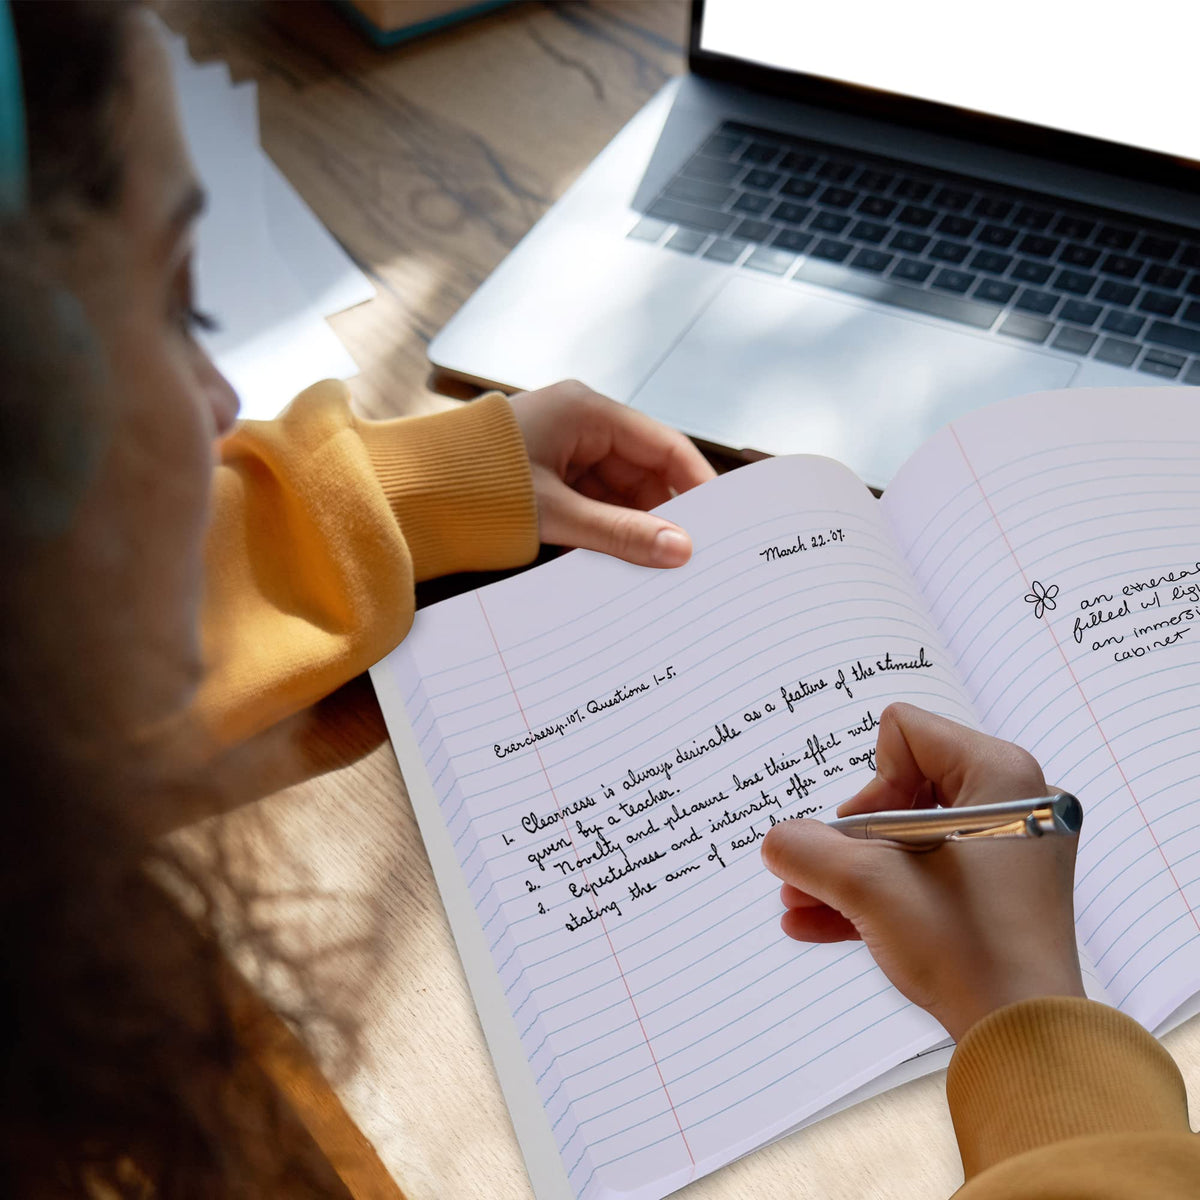 March 22-'07.
Exercises p.107. Questions 1-5.
1. Clearness is always desirable as a feature of the stimuli
given by a teacher.
2. Novelty and pleasure lose their effect with
3. Expectedness and intensity offer an
stating the aim of each lesson.
an
filled w/
an
cabinet